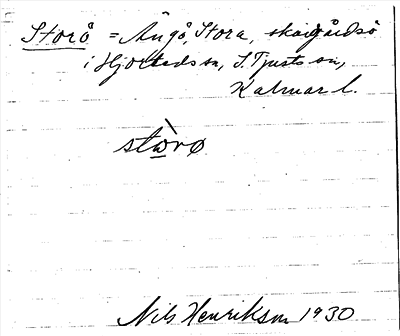 Storå = Ängå, Stora, skärgårdsö
i Hjorteds sn, S. Tjusts sn,
Kalmar l.
stòrø
Nils Henrikson 1930